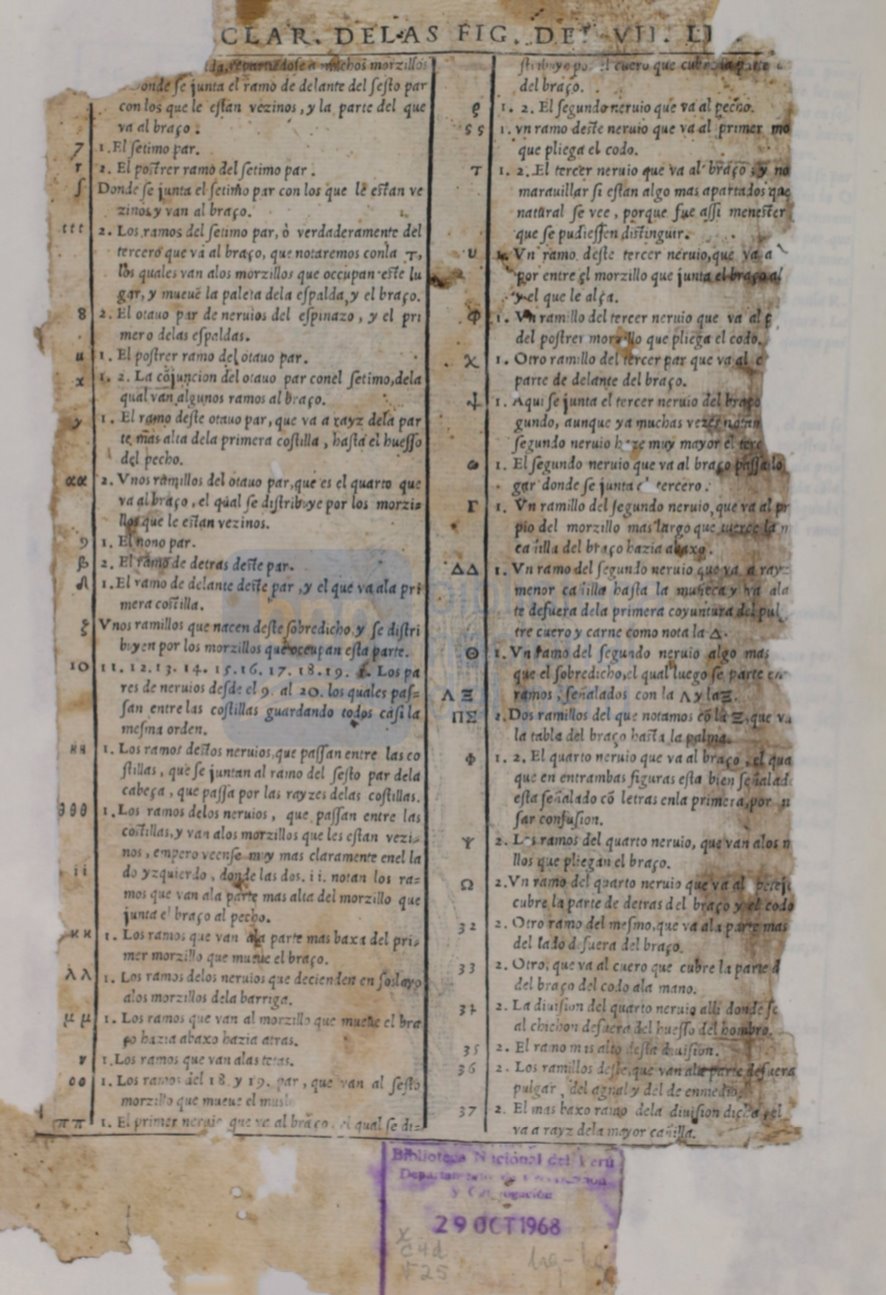 CLAR. DE LAS FIG. DEL VII. LI
da, repartiẽdose a muchos morzillos
onde se junta el ramo de delante del sesto par
con los que le estan vezinos, y la parte del que
va al braço.
7 1. El setimo par.
r 2. El postrer ramo del setimo par.
ſ Donde se junta el setimo par con los que le estan ve
zinos y van al braço.
ttt 2. Los ramos del setimo par, ò verdaderamente del
tercero que va al braço, que notaremos conla τ,
los quales van alos morzillos que occupan este lu
gar, y mueuẽ la paleta dela espalda, y el braço.
8 2. El otauo par de neruios del espinazo, y el pri
mero delas espaldas.
u 1. El postrer ramo del otauo par.
x 1. 2. La cõjuncion del otauo par conel setimo, dela
qual van algunos ramos al braço.
y 1. El ramo deste otauo par, que va a rayz dela par
te mas alta dela primera costilla, hasta el huesso
del pecho.
αα 2. Vnos ramillos del otauo par, que es el quarto que
va al braço, el qual se distribuye por los morzi-
llos que le estan vezinos.
9 1. El nono par.
β 2. El ramo de detras deste par.
1. El ramo de delante deste par, y el que va ala pri
mera costilla.
ξ Vnos ramillos que nacen deste sobredicho, y se distri
buyen por los morzillos que occupan esta parte.
10 11. 12. 13. 14. 15. 16. 17. 18. 19. Los pa
res de neruios desde el 9. al 20. los quales pas-
san entre las costillas guardando todos casi la
mesma orden.
1. Los ramos destos neruios, que passan entre las co
stillas, que se juntan al ramo del sesto par dela
cabeça, que passa por las rayzes delas costillas.
θθθ 1. Los ramos delos neruios, que passan entre las
costillas, y van alos morzillos que les estan vezi-
nos, empero veense muy mas claramente enel la
ii do yzquierdo, donde las dos. ii. notan los ra-
mos que van ala parte mas alta del morzillo que
junta el braço al pecho.
κκ 1. Los ramos que van ala parte mas baxa del pri-
mer morzillo que mueue el braço.
λλ 1. Los ramos delos neruios que decienden en soslayo
alos morzillos dela barriga.
μμ 1. Los ramos que van al morzillo que mueue el bra
ço hazia abaxo hazia atras.
ν 1. Los ramos que van alas tetas.
οο 1. Los ramos del 18. y 19. par, que van al sesto
morzillo que mueue el musl
ππ 1. El primer neruio que va al braço, el qual se di-
stribuye por el cuero que cubre la parte
del braço.
ρ 1. 2. El segundo neruio que va al pecho.
ςς 1. vn ramo deste neruio que va al primer mo
que pliega el codo.
τ 1. 2. El tercer neruio que va al braço, y no
marauillar si estan algo mas apartados que
natural se vee, porque fue assi menester
que se pudiessen distinguir.
υ Vn ramo deste tercer neruio, que va a
por entre el morzillo que junta el braço al
y el que le alça.
φ 1. Vn ramillo del tercer neruio que va al
del postrer morzillo que pliega el codo.
χ 1. Otro ramillo del tercer par que va al
parte de delante del braço.
1. Aqui se junta el tercer neruio del braço
gundo, aunque ya muchas vezes notan
segundo neruio haze muy mayor el terc
ω 1. El segundo neruio que va al braço passa lo
gar donde se junta tercero.
Γ 1. Vn ramillo del segundo neruio, que va al pr
pio del morzillo mas largo que tuerce la
cañilla del braço hazia abaxo.
ΔΔ 1. Vn ramo del segundo neruio que va a rayz
menor cañilla hasta la muñeca y va ala
te defuera dela primera coyuntura del pul
tre cuero y carne como nota la Δ.
Θ 1. Vn ramo del segundo neruio algo mas
que el sobredicho, el qual luego se parte en
ΛΞ ramos, señalados con la Λ y la Ξ.
ΠΣ 2. Dos ramillos del que notamos cõ la Ξ, que va
la tabla del braço hasta la palma.
Φ 1. 2. El quarto neruio que va al braço, el qua
que en entrambas figuras esta bien señalad
esta señalado cõ letras enla primera, por
sar confusion.
Ψ 2. Los ramos del quarto neruio, que van alos
llos que pliegan el braço.
Ω 2. Vn ramo del quarto neruio que va al
cubre la parte de detras del braço y el codo
32 2. Otro ramo del mesmo, que va ala parte mas
del lado defuera del braço.
33 2. Otro, que va al cuero que cubre la parte d
del braço del codo ala mano.
34 2. La diuision del quarto neruio alli donde se
al chichon defuera del huesso del hombro.
35 2. El ramo mas alto desta diuision.
36 2. Los ramillos deste, que van ala parte defuera
pulgar, del agnal y del de enmedio
37 2. El mas baxo ramo dela diuision dicha, el
va a rayz dela mayor cañilla.
Biblioteca Nacional del Perú
y Catalogación
29 OCT 1968